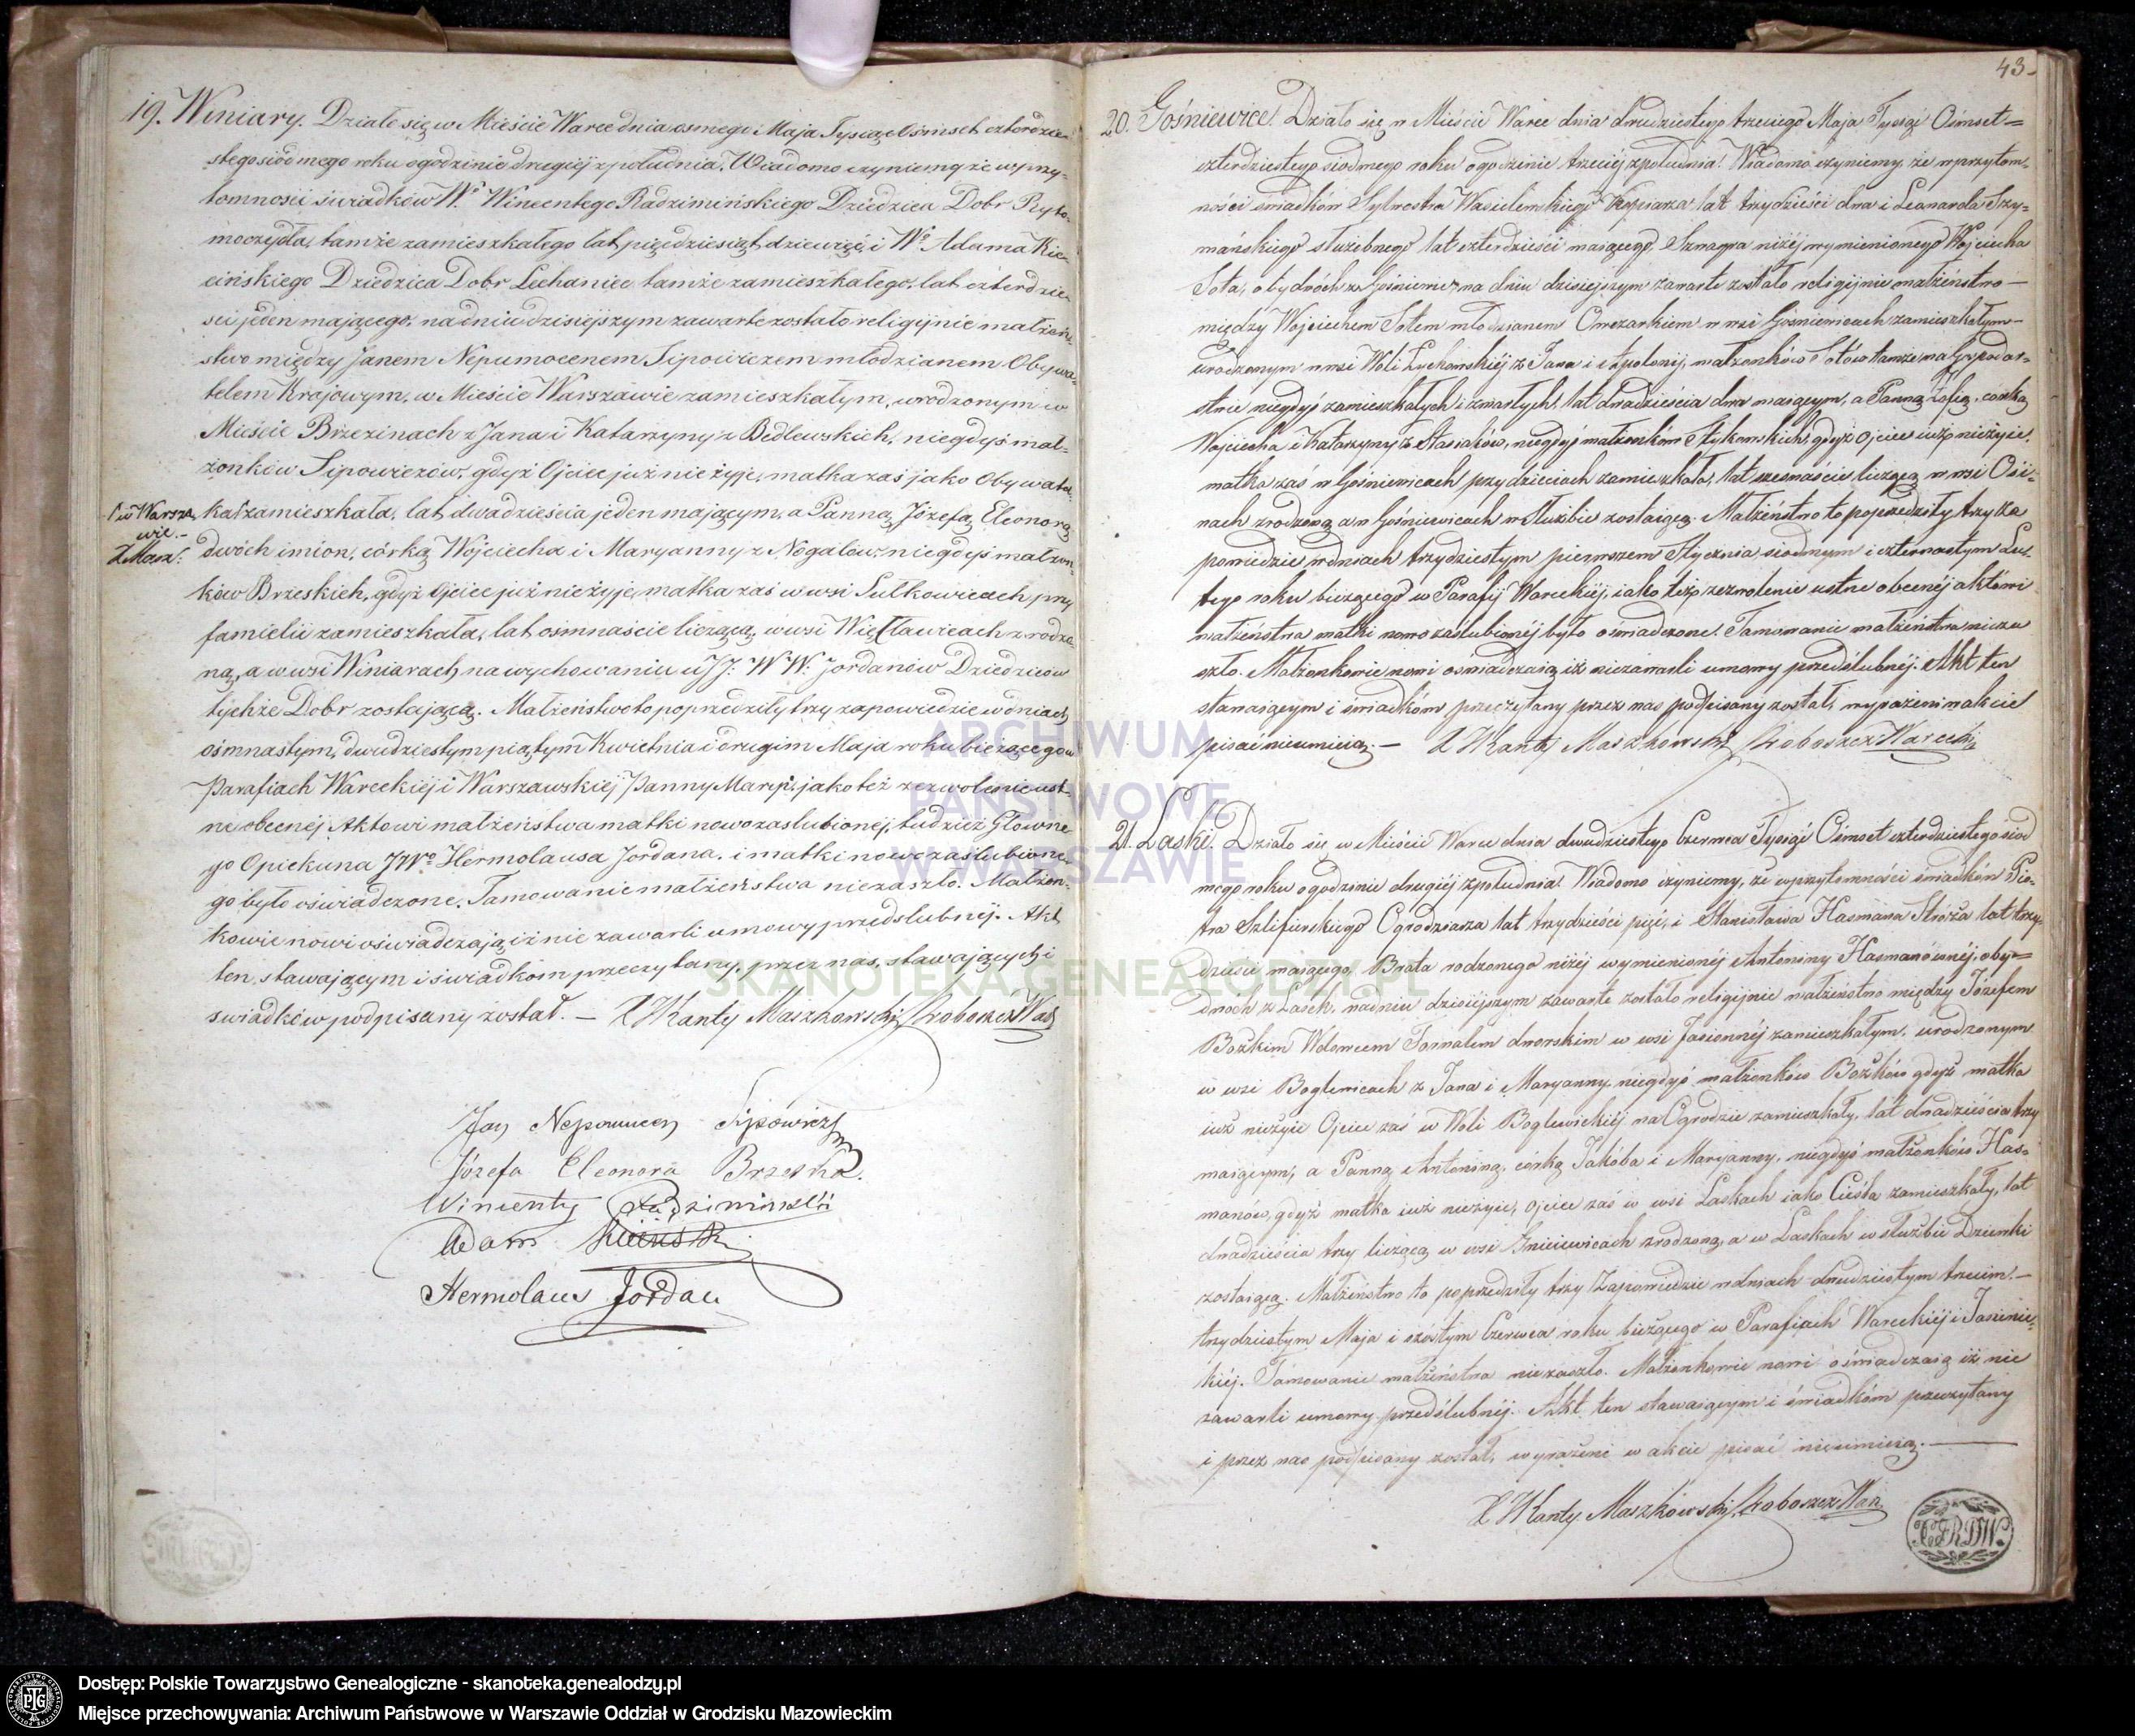 19. Winiary. Działo się w Mieście Warce dnia osmego Maja Tysiąc Ośmset czterdzie-
stego siódmego roku o godzinie drugiéj z południa. Wiadomo czyniemy że w przy-
tomności świadków W.º Wincentego Radzimińskiego Dziedzica Dobr Ryto-
moczydła, tamże zamieszkałego lat pięćdziesiąt dziewięć, i Wº Adama Kie-
cińskiego Dziedzica Dobr Lechanice, tamże zamieszkałego, lat czterdzie-
ści jeden mającego, na dniu dzisiejszym zawarte zostało religijnie małżeń-
stwo między Janem Nepumocenem Sipowiczem młodzianem Obywa-
telem Krajowym, w Mieście Warszawie zamieszkałym, urodzonym w
Mieście Brzezinach z Jana i Katarzyny z Bedlewskich, niegdyś mał-
żonków Sipowiczów, gdyż Ojciec już nie żyje, matka zaś jako Obywatel-
/ w Warsza
wie. –
ka / zamieszkała, lat dwadzieścia jeden mającym, a Panną Józefą Eleonorą
dwóch imion, córką Wojciecha i Maryanny z Nogalów niegdyś małżon-
ków Brzeskich, gdyż Ojciec już nie żyje, matka zaś w wsi Sułkowicach przy
familii zamieszkała, lat ośmnaście liczącą, w wsi Więcławicach zrodzo-
ną, a w wsi Winiarach na wychowaniu u JJ: WW: Jordanów Dziedziców
tychże Dobr zostającą. Małżeństwo to poprzedziły trzy zapowiedzie w dniach
ośmnastym, dwudziestym piątym Kwietnia i drugim Maja roku bieżącego w
Parafiach Wareckiéj i Warszawskiéj Panny Maryi, jako też zezwolenie ust-
ne obecnéj Aktowi małżeństwa matki nowozaślubionéj, tudzież Główne-
go Opiekuna JWº Hermolausa Jordana, i matki nowozaślubione-
go było oświadczone. Tamowanie małżeństwa niezaszło. Małżon-
kowie nowi oświadczają iż nie zawarli umowy przedślubnéj. Akt
ten, stawającym i świadkom przeczytany, przez nas, stawających i
świadków podpisany został. – X JKanty Maszkowski Proboszcz War.
Jan Nepomucen Sipowicz
Józefa Eleonora Brzeska.
Wincenty Radziminski
Adam Kicinski
Hermolaus Jordan
43
20. Gośniewice. Działo się w Mieście Warce dnia dwudziestego trzeciego Maja Tysiąc Ośmset=
czterdziestego siodmego roku o godzinie trzeciéj z południa. Wiadomo czyniemy, że w przytom-
ności świadków Sylwestra Wasilewskiego lat trzydzieści dwa i Leonarda Szy-
mańskiego służebnego lat czterdzieści maiącego, Szwagra niżéj wymienionego Wojciecha
Sota, obydwóch z Gośniewic, na dniu dzisiejszym zawarte zostało religijnie małżeństwo –
między Wojciechem Sotem młodzianem Owczarkiem w wsi Gośniewicach zamieszkałym –
urodzonym w wsi Woli Łychowskiéj z Jana i Apolonij, małżonków Sotów tamże na Gospodar-
stwie niegdyś zamieszkałych i zmarłych, lat dwadzieścia dwa maiącym, a Panną Zofią, córką
Wojciecha i Katarzyny z Stasiaków, niegdyś małżonków Stykowskich, gdyż Ojciec iuż nieżyie,
matka zaś w Gośniewicach przy dzieciach zamieszkała, lat szesnaście liczącą w wsi Osi-
nach zrodzoną a w Gośniewicach w Służbie zostaiącą. Małżeństwo to poprzedziły trzy za
powiedzie w dniach trzydziestym pierwszem Stycznia siodmym i czternastym Lu-
tego roku bieżącego w Parafij Wareckiéj, iako też zezwolenie ustne obecnéj aktowi
małżeństwa matki nowo zaślubionéj było oświadczone. Tamowanie małżeństwa nieza
szło. Małżonkowie nowi oświadczaią iż niezawarli umowy przedślubnéj. Akt ten
stawaiącym i świadkóm przeczytany przez nas podpisany został, wyrażeni w akcie
pisać nieumieią. – X JKanty Maszkowski Proboszcz Warecki
21. Laski. Działo się w Mieście Warce dnia dwudziestego Czerwca Tysiąc Ośmset czterdziestego siod
mego roku o godzinie drugiéj z południa. Wiadomo czyniemy, że w przytomności świadków Pio-
tra Szlifierskiego Ogrodziarza lat trzydzieści pięć, i Stanisława Hasmana Stróża lat trzy-
dzieści maiącego, Brata rodzonego niżéj wymienionéj Antoniny Hasmanównéj, oby=
dwóch z Lasek, na dniu dzisiejszym zawarte zostało religijnie małżeństwo między Józefem
Bożkim Wdowcem Fornalem dworskim w wsi Jasionnéj zamieszkałym, urodzonym
w wsi Boglewicach z Jana i Maryanny niegdyś małżonków Bożków gdyż matka
iuż nieżyie Ojciec zaś w Woli Boglewickiéj na Ogrodzie zamieszkały, lat dwadzieścia trzy
maiącym, a Panną Antoniną, córką Jakóba i Maryanny, niegdyś małżonków Has-
manów, gdyż matka iuż nieżyie, Ojciec zaś w wsi Laskach iako Cieśla zamieszkały, lat
dwadzieścia trzy liczącą w wsi Gnieiewicach zrodzoną, a w Laskach w służbie Dziewki
zostaiącą. Małżeństwo to poprzedziły trzy Zapowiedzie w dniach dwudziestym trzecim –
trzydziestym Maja i szóstym Czerwca roku bieżącego w Parafiach Wareckiéj i Jasienic-
kiéj. Tamowanie małżeństwa niezaszło. Małżonkowie nowi oświadczaią iż nie
zawarli umowy przedślubnéj. Akt ten stawaiącym i świadkóm przeczytany
i przez nas podpisany został, wyrażeni w akcie pisać nieumieią. –
X JKanty Maszkowski Proboszcz War.
ARCHIWUM
PAŃSTWOWE
W WARSZAWIE
SKANOTEKA.GENEALODZY.PL
Dostęp: Polskie Towarzystwo Genealogiczne - skanoteka.genealodzy.pl
Miejsce przechowywania: Archiwum Państwowe w Warszawie Oddział w Grodzisku Mazowieckim